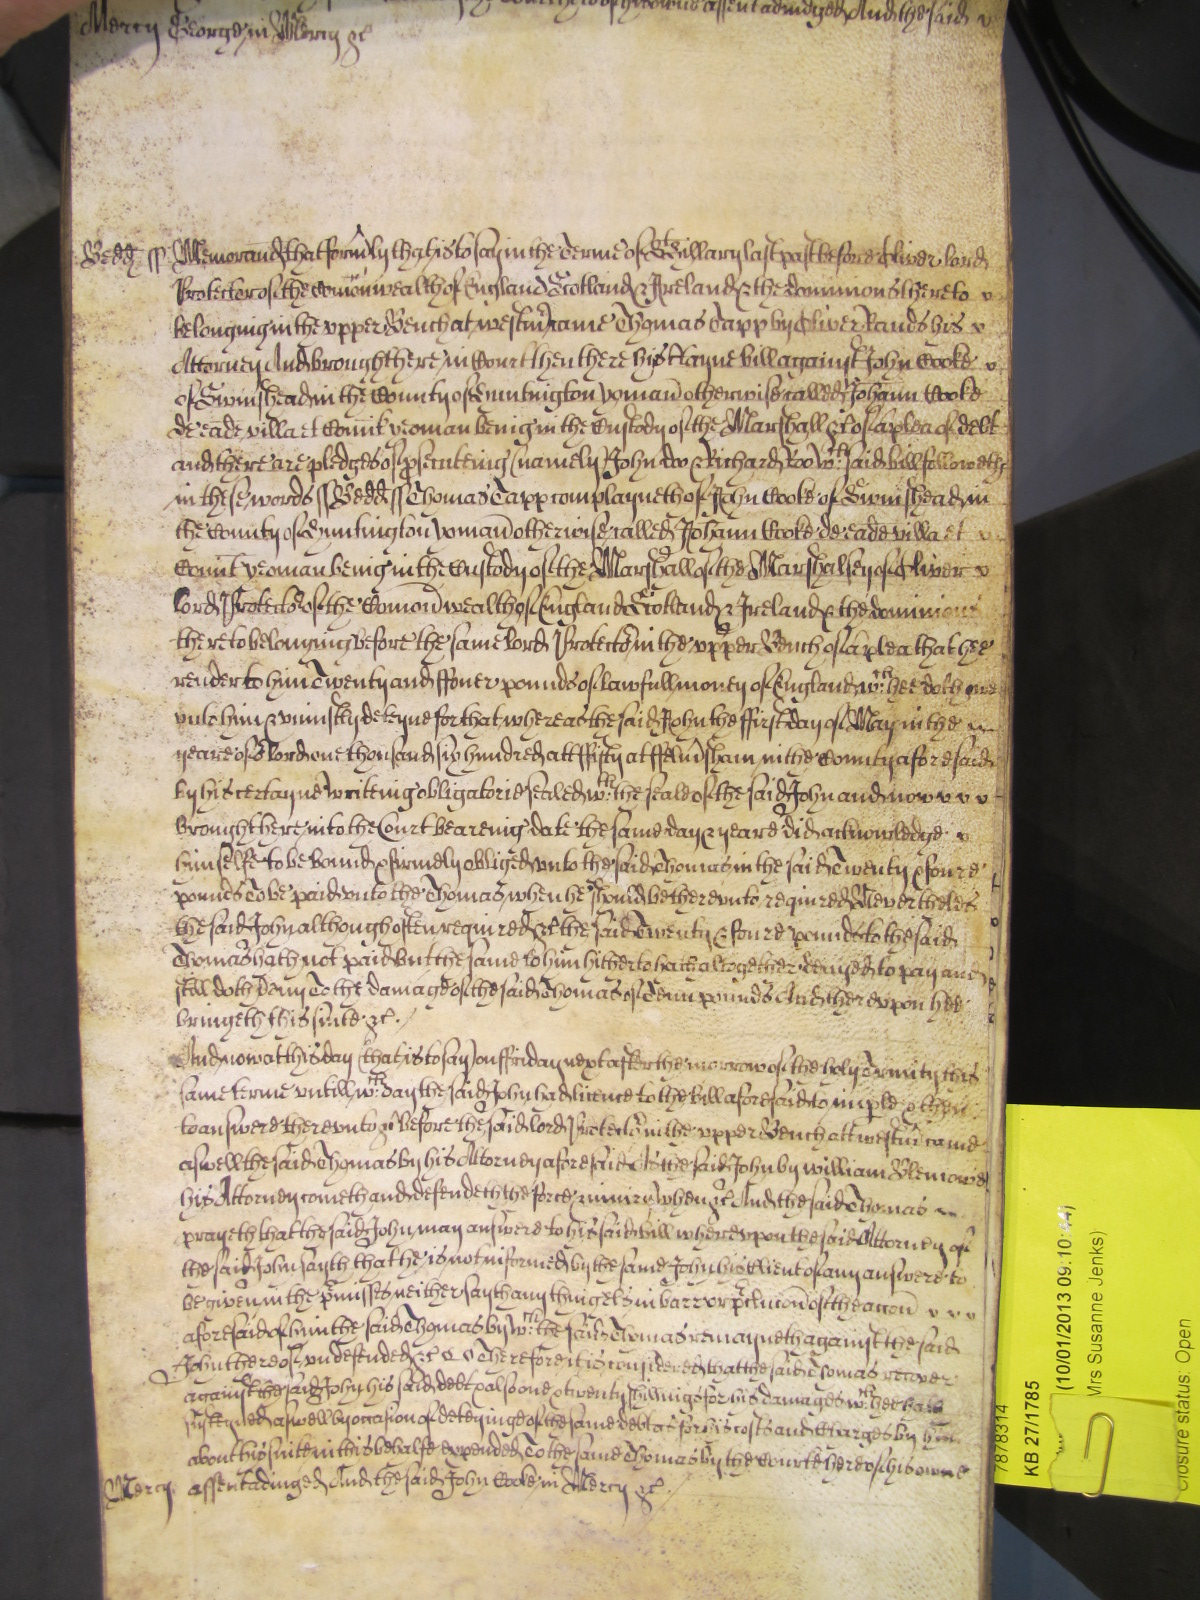 by the Court here of his owne assent adiudged And the said
Mercy George in Mercy &c
Bedd ss Memorand that formerly that is to say in the Terme of St Hillary last past before Oliver lord
Protector of the Comonwealth of England Scotland & Ireland & the dominions thereto
belonging in the vpper Bench at westmr came Thomas Tapp by Oliver Rands his
Attorney And brought here in Court then there his Playne bill against John Cooke
of Swinshead in the County of Huntington yoman otherwise called Johann Cooke
de eade villa et Comit yeoman being in the Custody of the Marshall &c of a plea of debt
and there are pledges of prosecuteing (namely) John doo & Richard Roo wch said bill followeth
in these words ss Bedd ss Thomas Tapp complayneth of John Cooke of Swinshead in
the County of Huntington yoman otherwise called Johann Cooke de eade villa et
Comit yeoman being in the Custody of the Marshall of the Marshalsey of Oliver
lord Protector of the Comonwealth of England Scotland & Ireland & the dominions
thereto belonging before the same lord Protector in the vpper Bench of a plea that hee
render to him Twenty and ffower pounds of lawfull money of England wch hee doth owe
vnto him & vniustly deteyne for that whereas the said John the ffirst day of May in the
yeare of or lord one thousand six hundred att ffifty at ffelmsham in the County aforesaid
by his certayne writeing obligatorie sealed wth the seale of the said John and now
brought here into the Court beareing date the same day & yeare did acknowledge
himselfe to be bound & firmely obliged vnto the said Thomas in the said Twenty & foure
pounds To be paid vnto the Thomas when he should be therevnto required Neverthelesse
the said John although often required &c the said Twenty & foure pounds to the said
Thomas hath not paid but the same to him hitherto hath altogether denied to pay and
still doth deny To the damage of the said Thomas of Tenn pounds And therevpon hee
bringeth this suite &c.
And now at this day (that is to say) on ffriday next after the morrow of the holy Trinity this
same terme vntill wch day the said John had licence to the bill aforesaid to imple & then
to answere therevnto &c before the said lord Protector in the vpper Bench att westmr came
aswell the said Thomas by his Attorney aforesaid As the said John by william
his Attorney cometh and defendeth the force & iniury when &c And the said Thomas
prayeth that the said John may answere to his said bill wherevpon the said Attorney of
the said John sayth that he is not informed by the same John his Client of any answere to
be given in the pmisses neither sayth any thing els in barr or pclucon of the accon
aforesaid of him the said Thomas by wch the said Thomas remayneth against the said
John thereof vndefended &c Therefore it is considered that the said Thomas recover
against the said John his said debt & alsoe one & twenty shillings for his damages wch hee hath
susteyned aswell by occasion of deteyninge of the same debt as for his costs and Charges by him
about his suite in this behalfe expended To the same Thomas by the Courte here of his owne
Mercy assent adiudged And the said John Cooke in Mercy &c.
7878314
KB 27/1785
(10/01/2013 09:10:44)
Mrs Susanne Jenks)
Closure status: Open